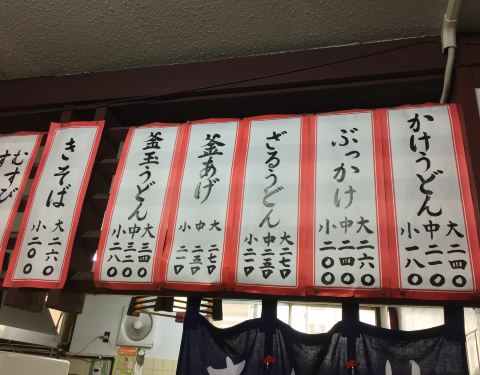 かけうどん
大二四〇
中二一〇
小一八〇
ぶっかけ
大二六〇
中二四〇
小二〇〇
ざるうどん
大二七〇
中二五〇
小二一〇
釜あげ
大二七〇
中二五〇
小二一〇
釜玉うどん
大三四〇
中三二〇
小二八〇
きそば
大二六〇
小二〇〇
むすび